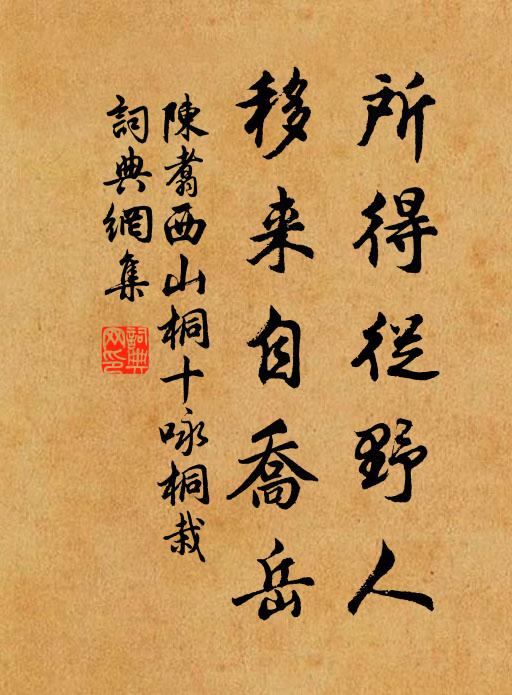 所得從野人
移来自喬岳
陳翥西山桐十咏桐栽
詞典網集
詞典网印